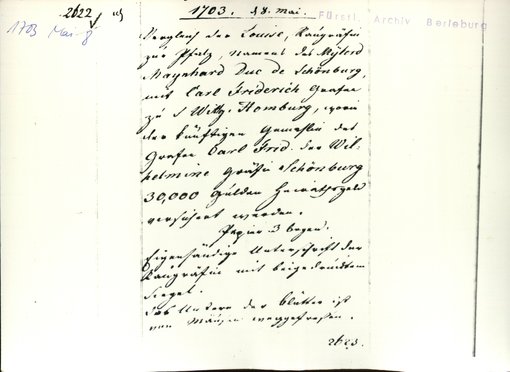 2622
1703. 18. Mai.
Fürstl. Archiv Berleburg
1703 Mai 8
Vergleich der Louise, Raugräfin
zur Pfalz, namens des Mylord
Maynhard Duc de Schönburg,
mit Carl Friderich Grafen
zu S. Wittg. Homburg, worin
der künftigen Gemahlin des
Grafen Carl Frid. der Wil-
helmine Gräfin Schönburg
30,000 Gulden Heirathsgeld
versichert werden.
Papier 3 bogen.
Eigenhändige Unterschrift der
Raugräfin mit beigedrucktem
Siegel.
Das Untere der Blätter ist
von Mäusen weggefressen.
2623.